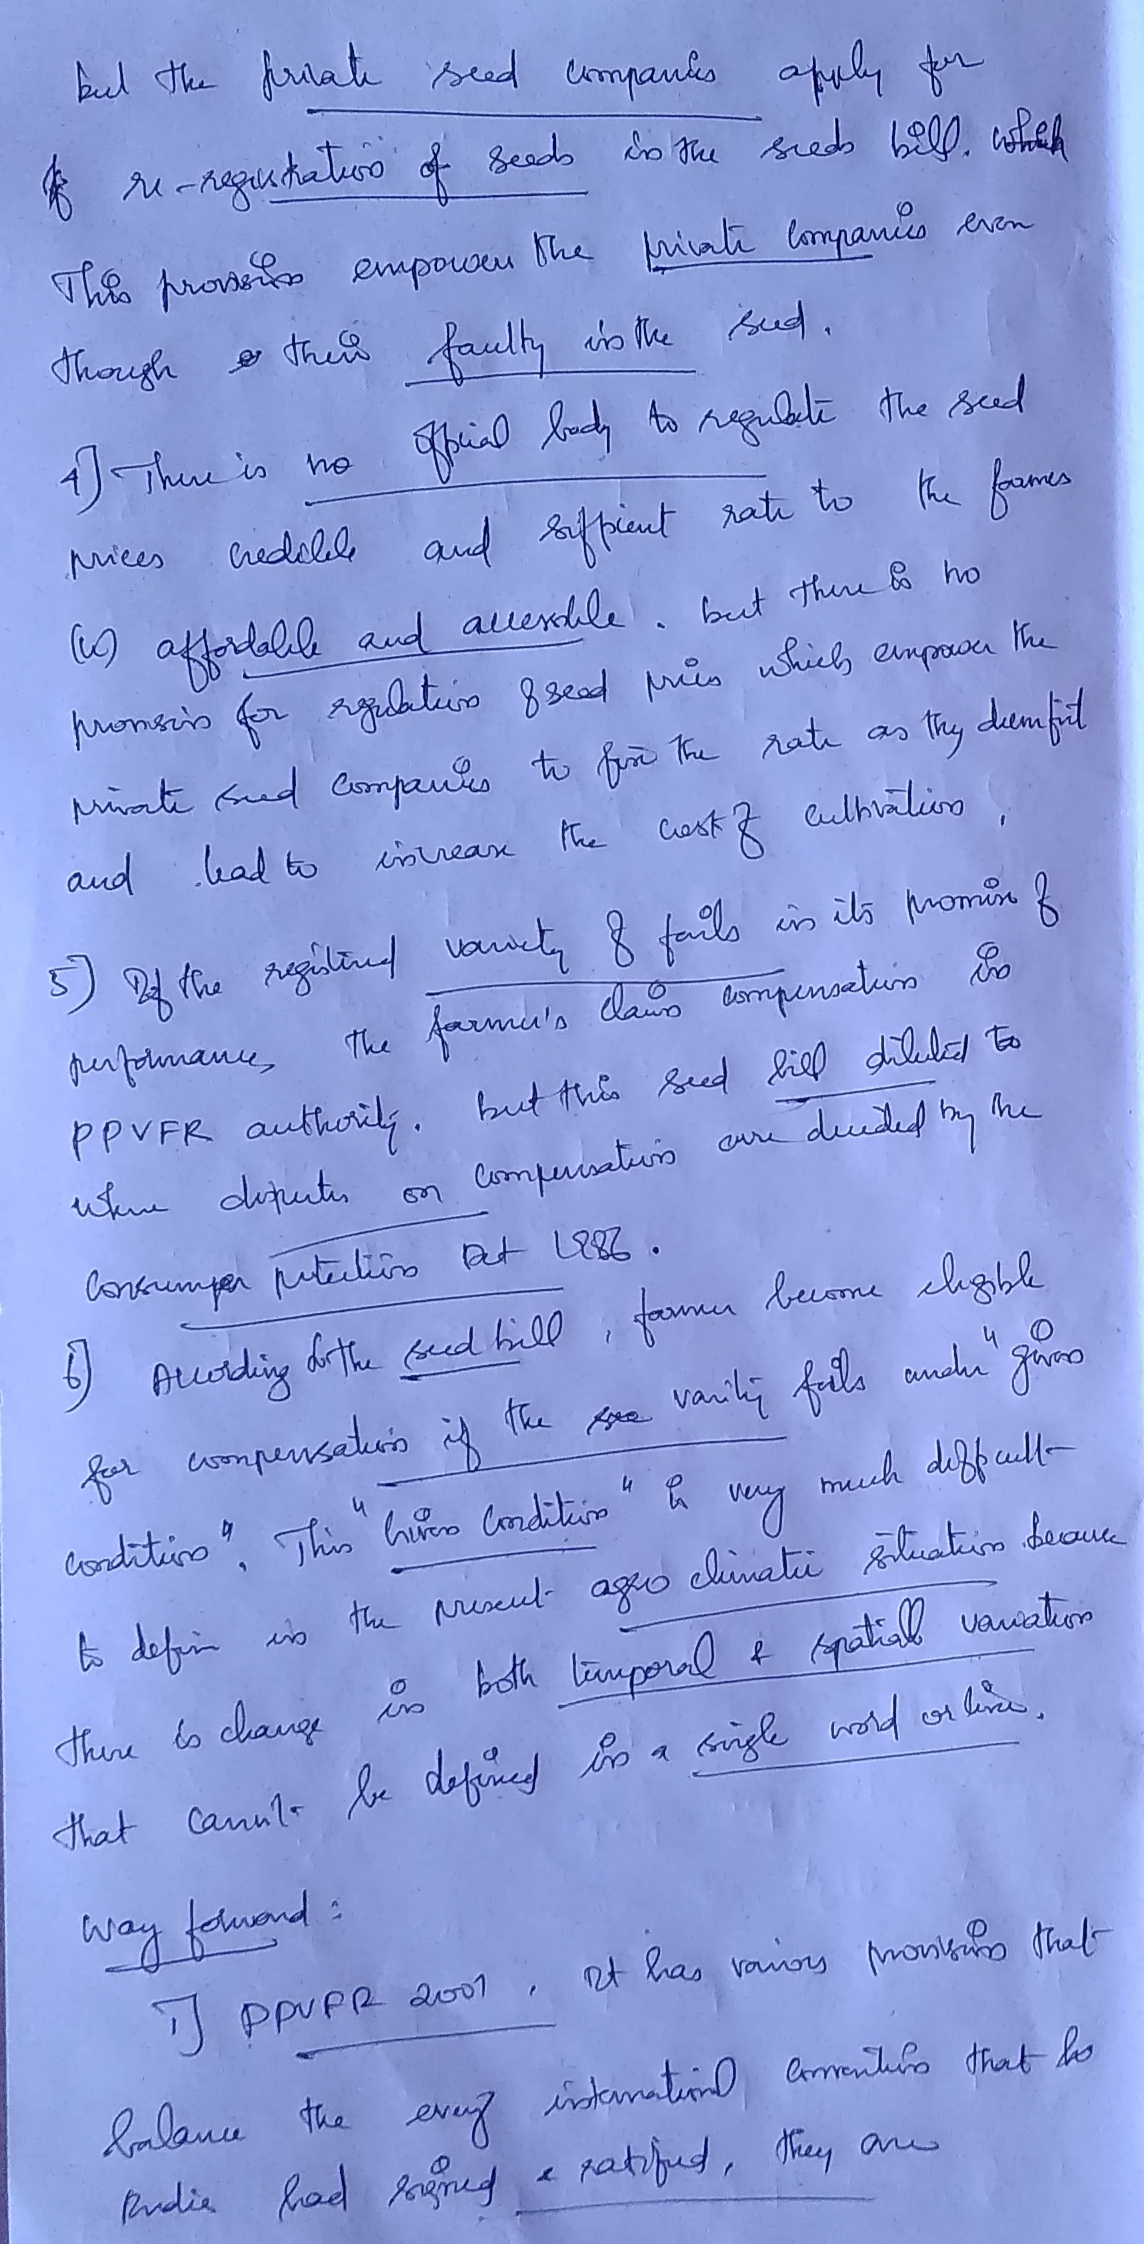 but the private seed companies apply for
re-registration of seeds in the seeds bill. which
This provision empower the private companies even
though their faulty in the seed.
4] There is no official body to regulate the seed
prices credible and suffpient rate to the farmes
(ie) affordable and accessible. but there is no
provision for regulation of seed prices which empower the
private seed companies to fix the rate as they deemfit
and lead to increase the cost of cultivation,
5) If the registered variety of fails in its promise of
performance, the farmer's claim compensation in
PPVFR authority. but this seed bill diluted to
where disputes on compensation are decided by the
Consumper protection Act 1986.
6] According to the seed bill, farmer become eligible
for compensation if the varity fails under "given
condition". This "given condition" is very much difficult
to define in the present agro climatic situation because
there is change in both temporal & spatiall variation
that cannot be defined in a single word or line.
Way forward:
1] PPVFR 2001, It has various provisions that
balance the every international convention that
India had signed & ratified, they are